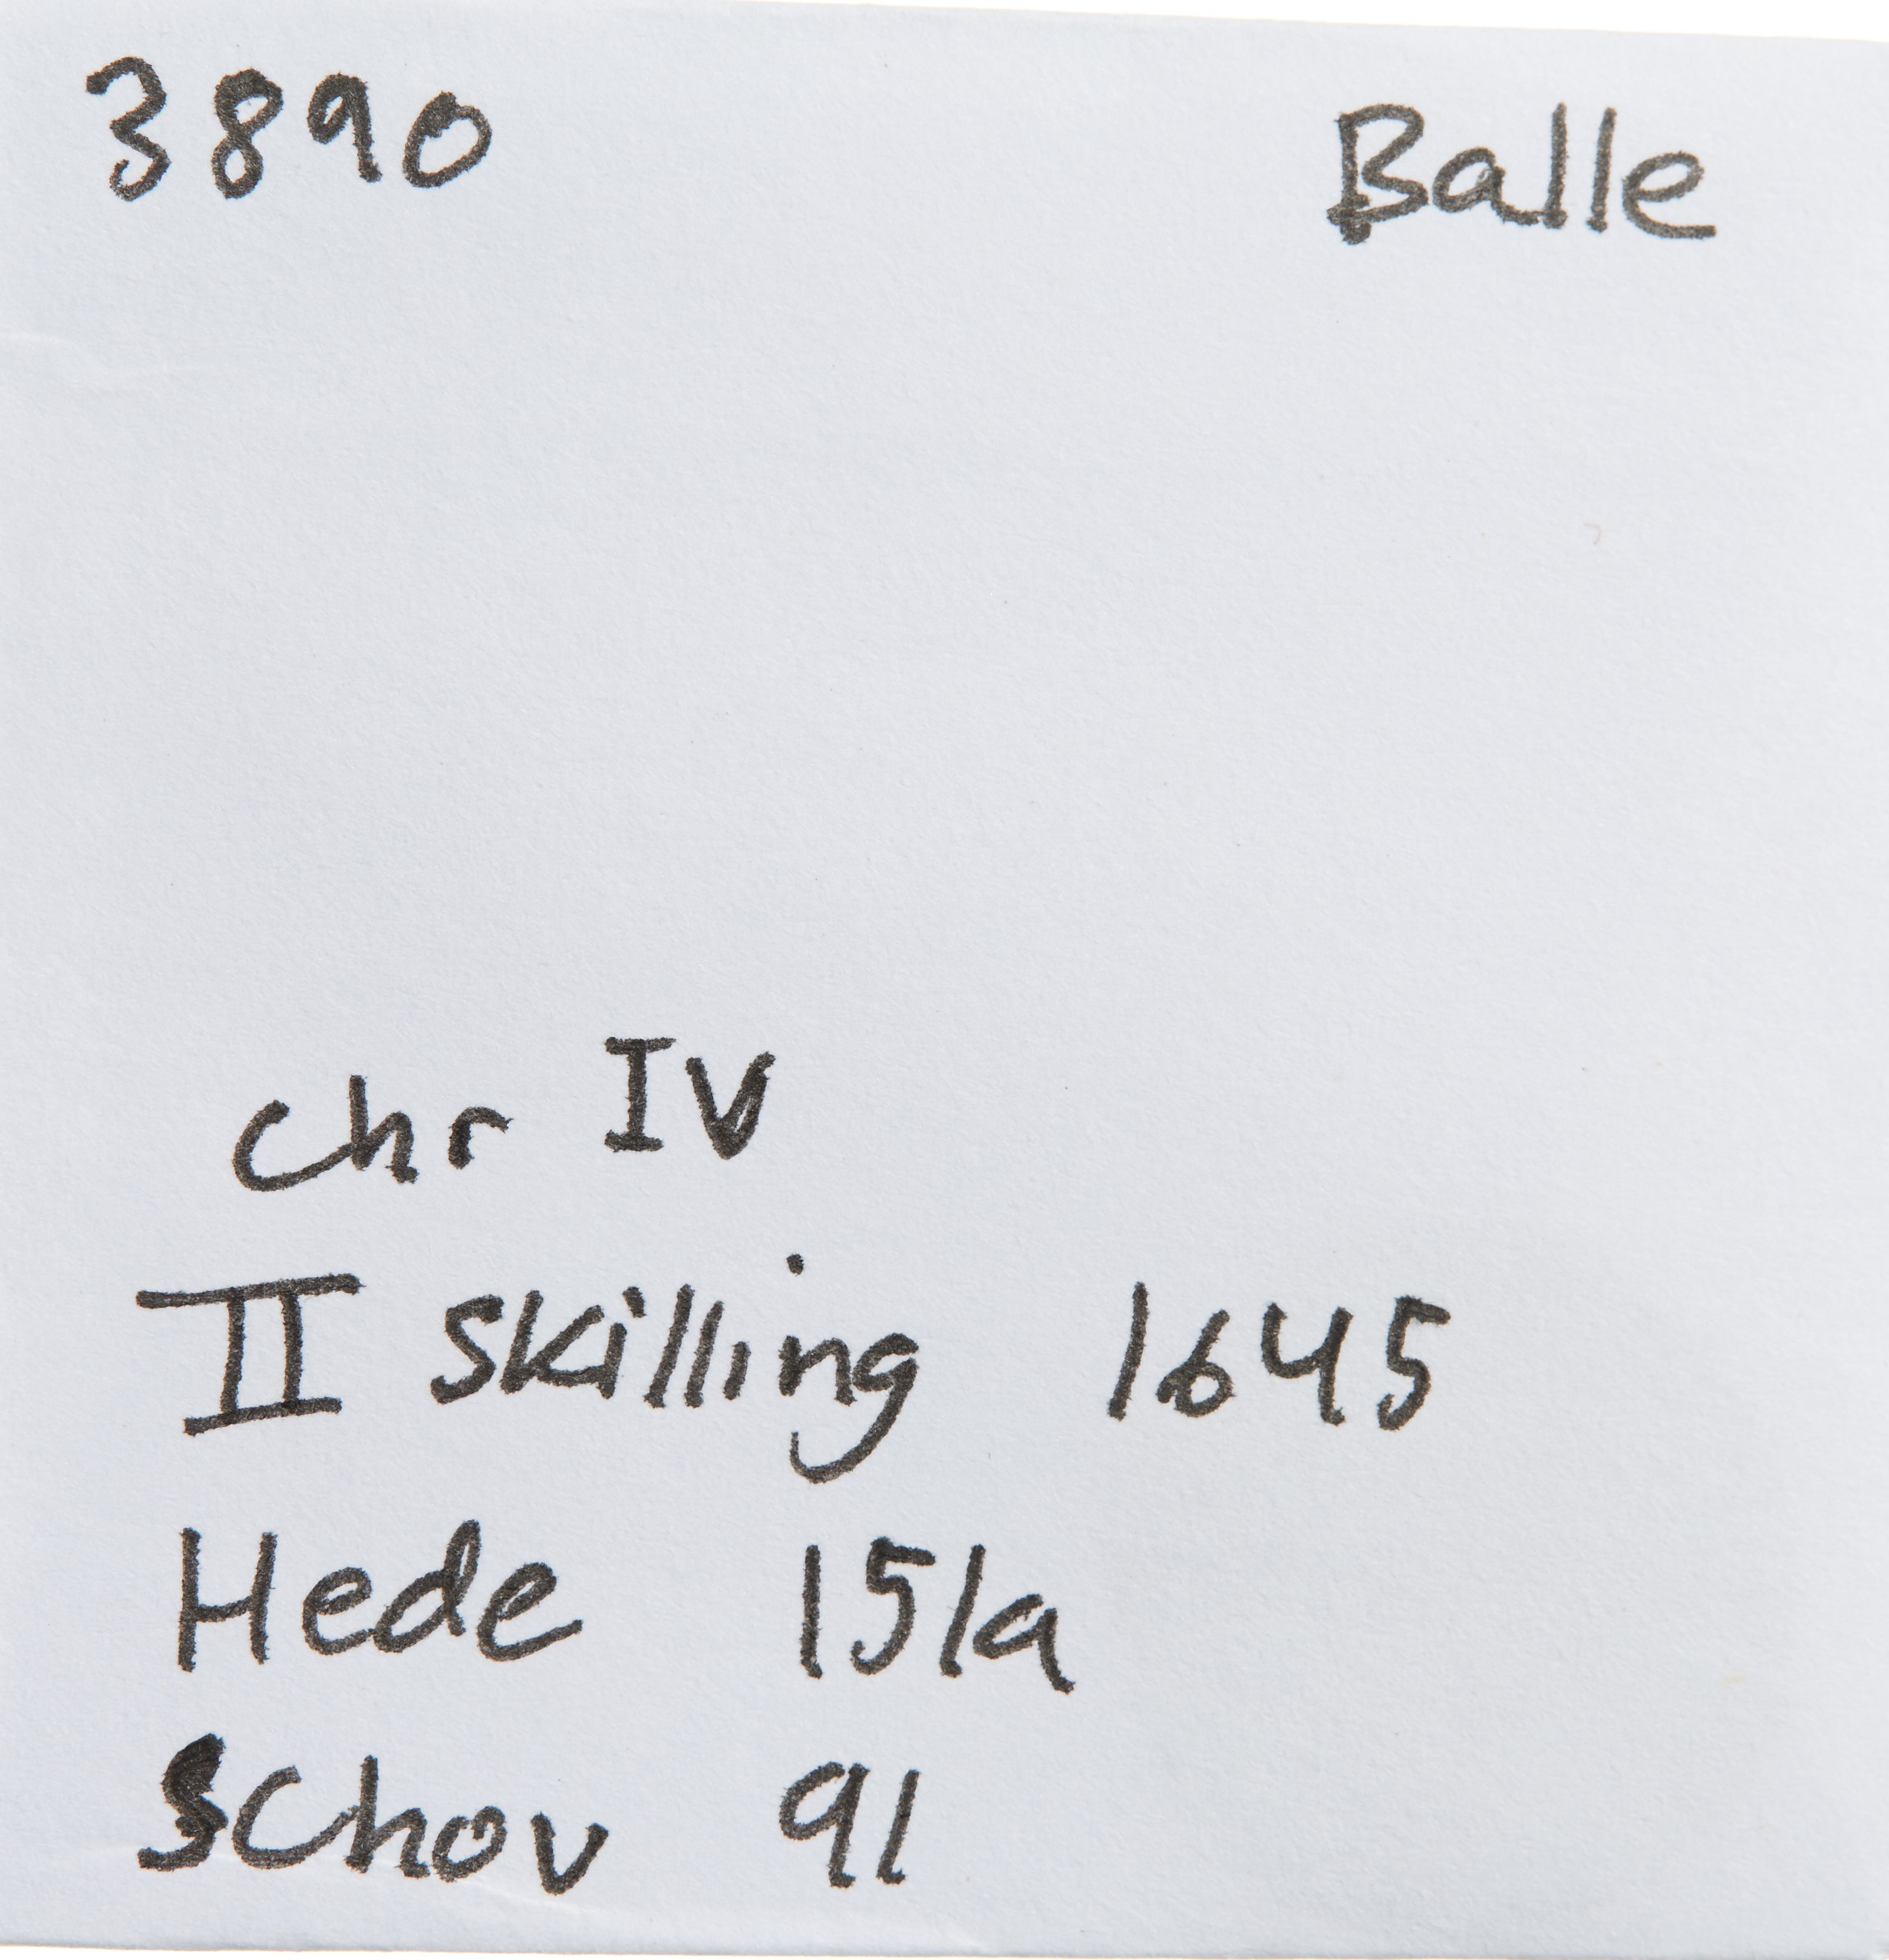 3890 Balle
Chr IV
II Skilling 1645
Hede 151a
Schov 91